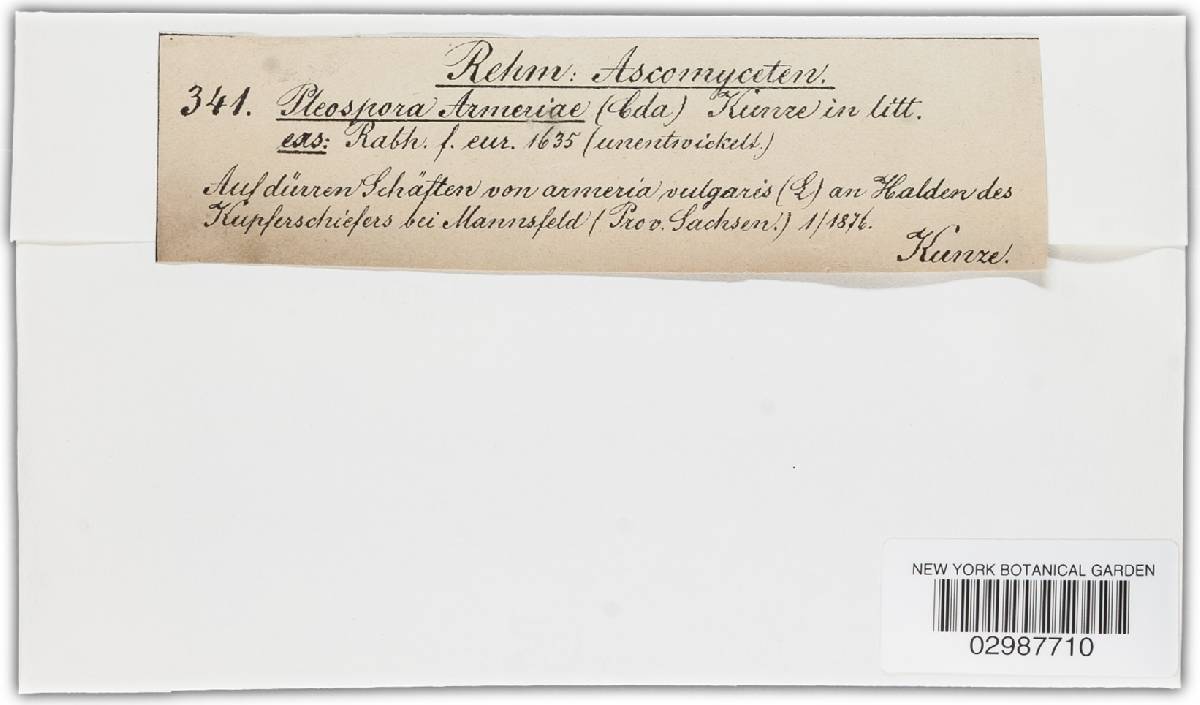 Rehm: Ascomyceten.
341. Pleospora Armeriae (Cda) Kunze in litt.
exs: Rabh. f. eur. 1635 (unentwickelt.)
Auf dürren Schäften von armeria vulgaris (L) an Halden des
Kupferschiefers bei Mannsfeld (Prov. Sachsen.) 1/1876.
Kunze.
NEW YORK BOTANICAL GARDEN
02987710